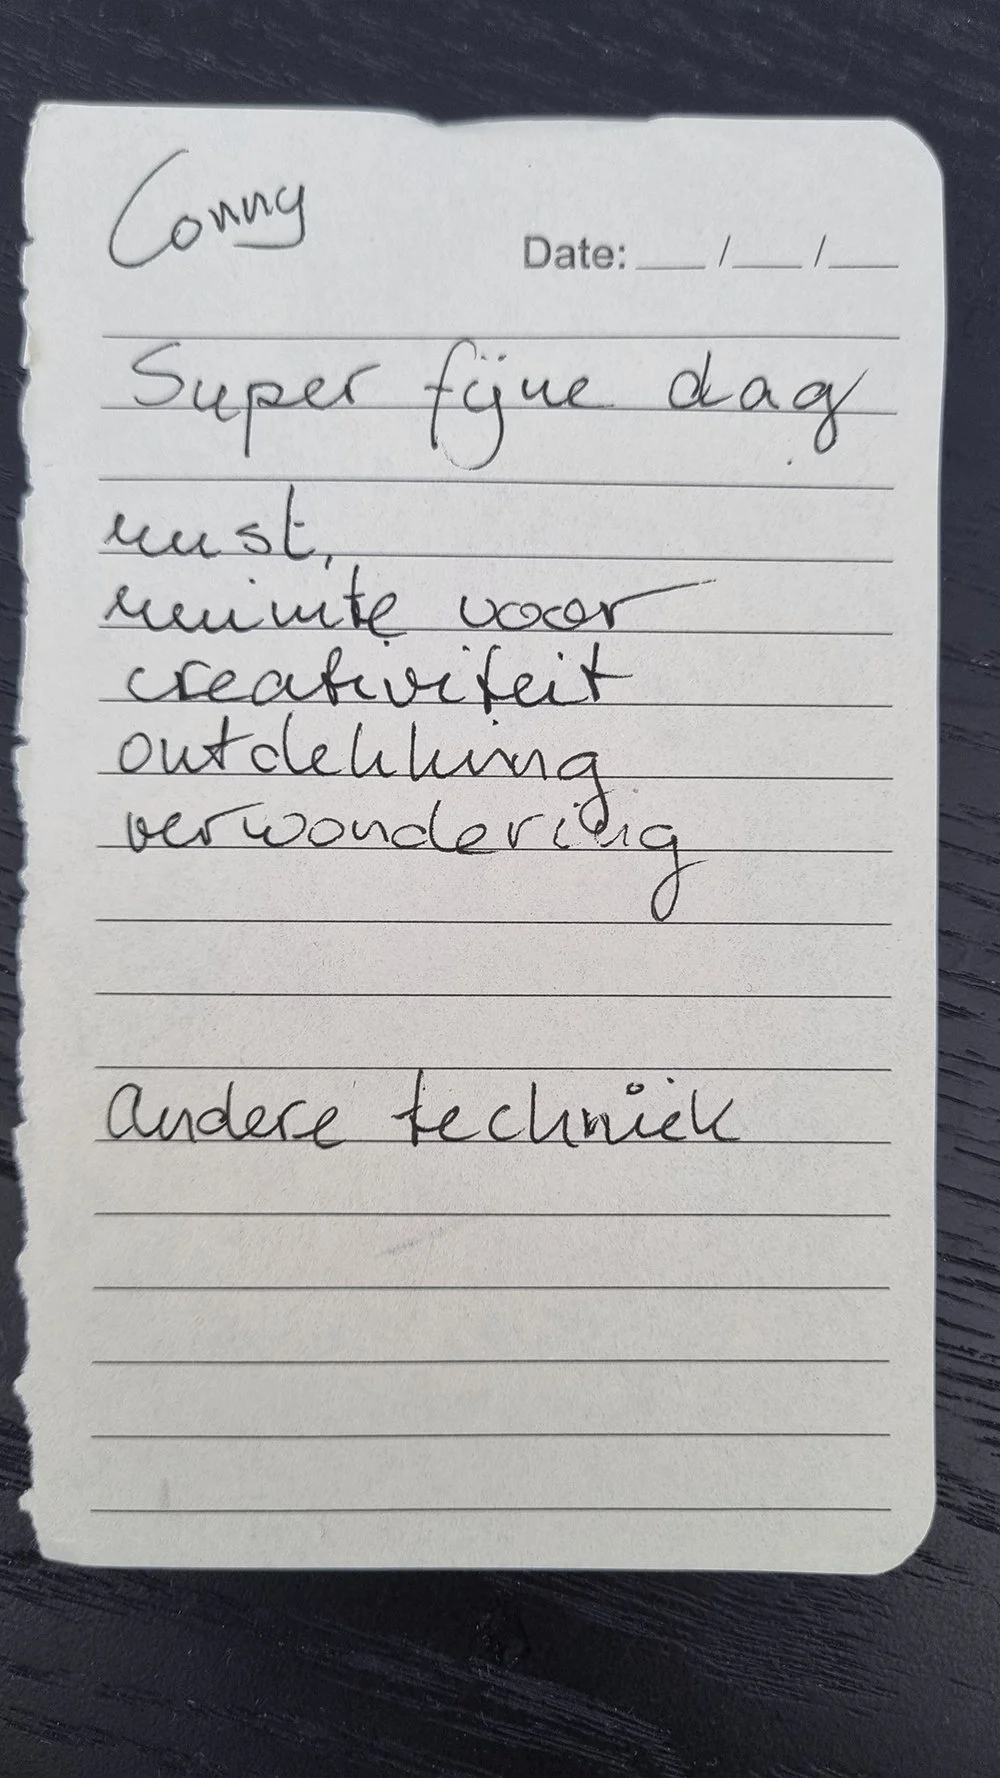 Conny
Date: ___ / ___ / ___
Super fijne dag
rust,
ruimte voor
creativiteit
ontdekking
verwondering
andere techniek